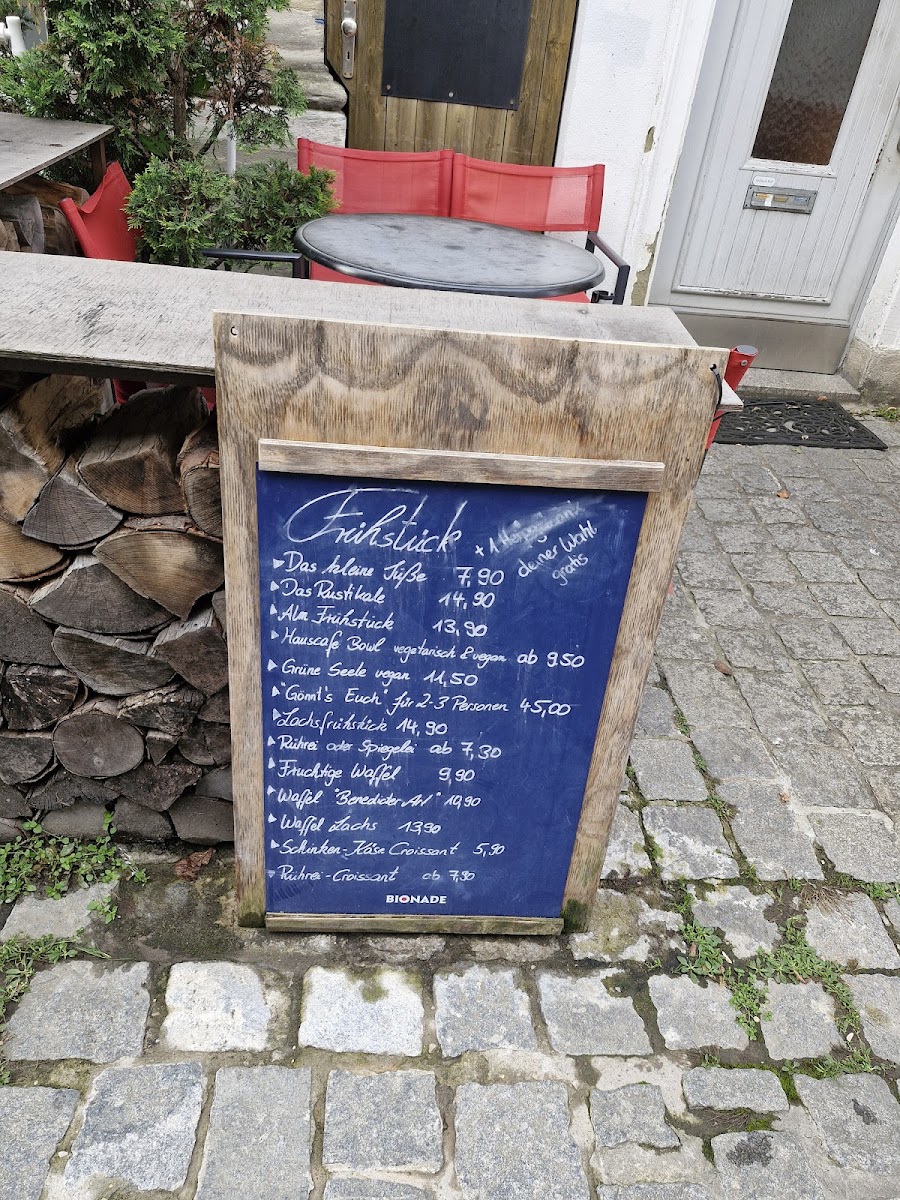 Frühstück
+ 1 Heißgetränk
deiner Wahl
gratis
Das kleine Süße 7,90
Das Rustikale 14,90
Alm Frühstück 13,90
Hauscafe Bowl vegetarisch & vegan ab 9,50
Grüne Seele vegan 11,50
"Gönnt's Euch" für 2-3 Personen 45,00
Lachsfrühstück 14,90
Rührei oder Spiegelei ab 7,30
Fruchtige Waffel 9,90
Waffel "Benedicter Art" 10,90
Waffel Lachs 13,90
Schinken-Käse Croissant 5,90
Rührei-Croissant ab 7,90
BIONADE